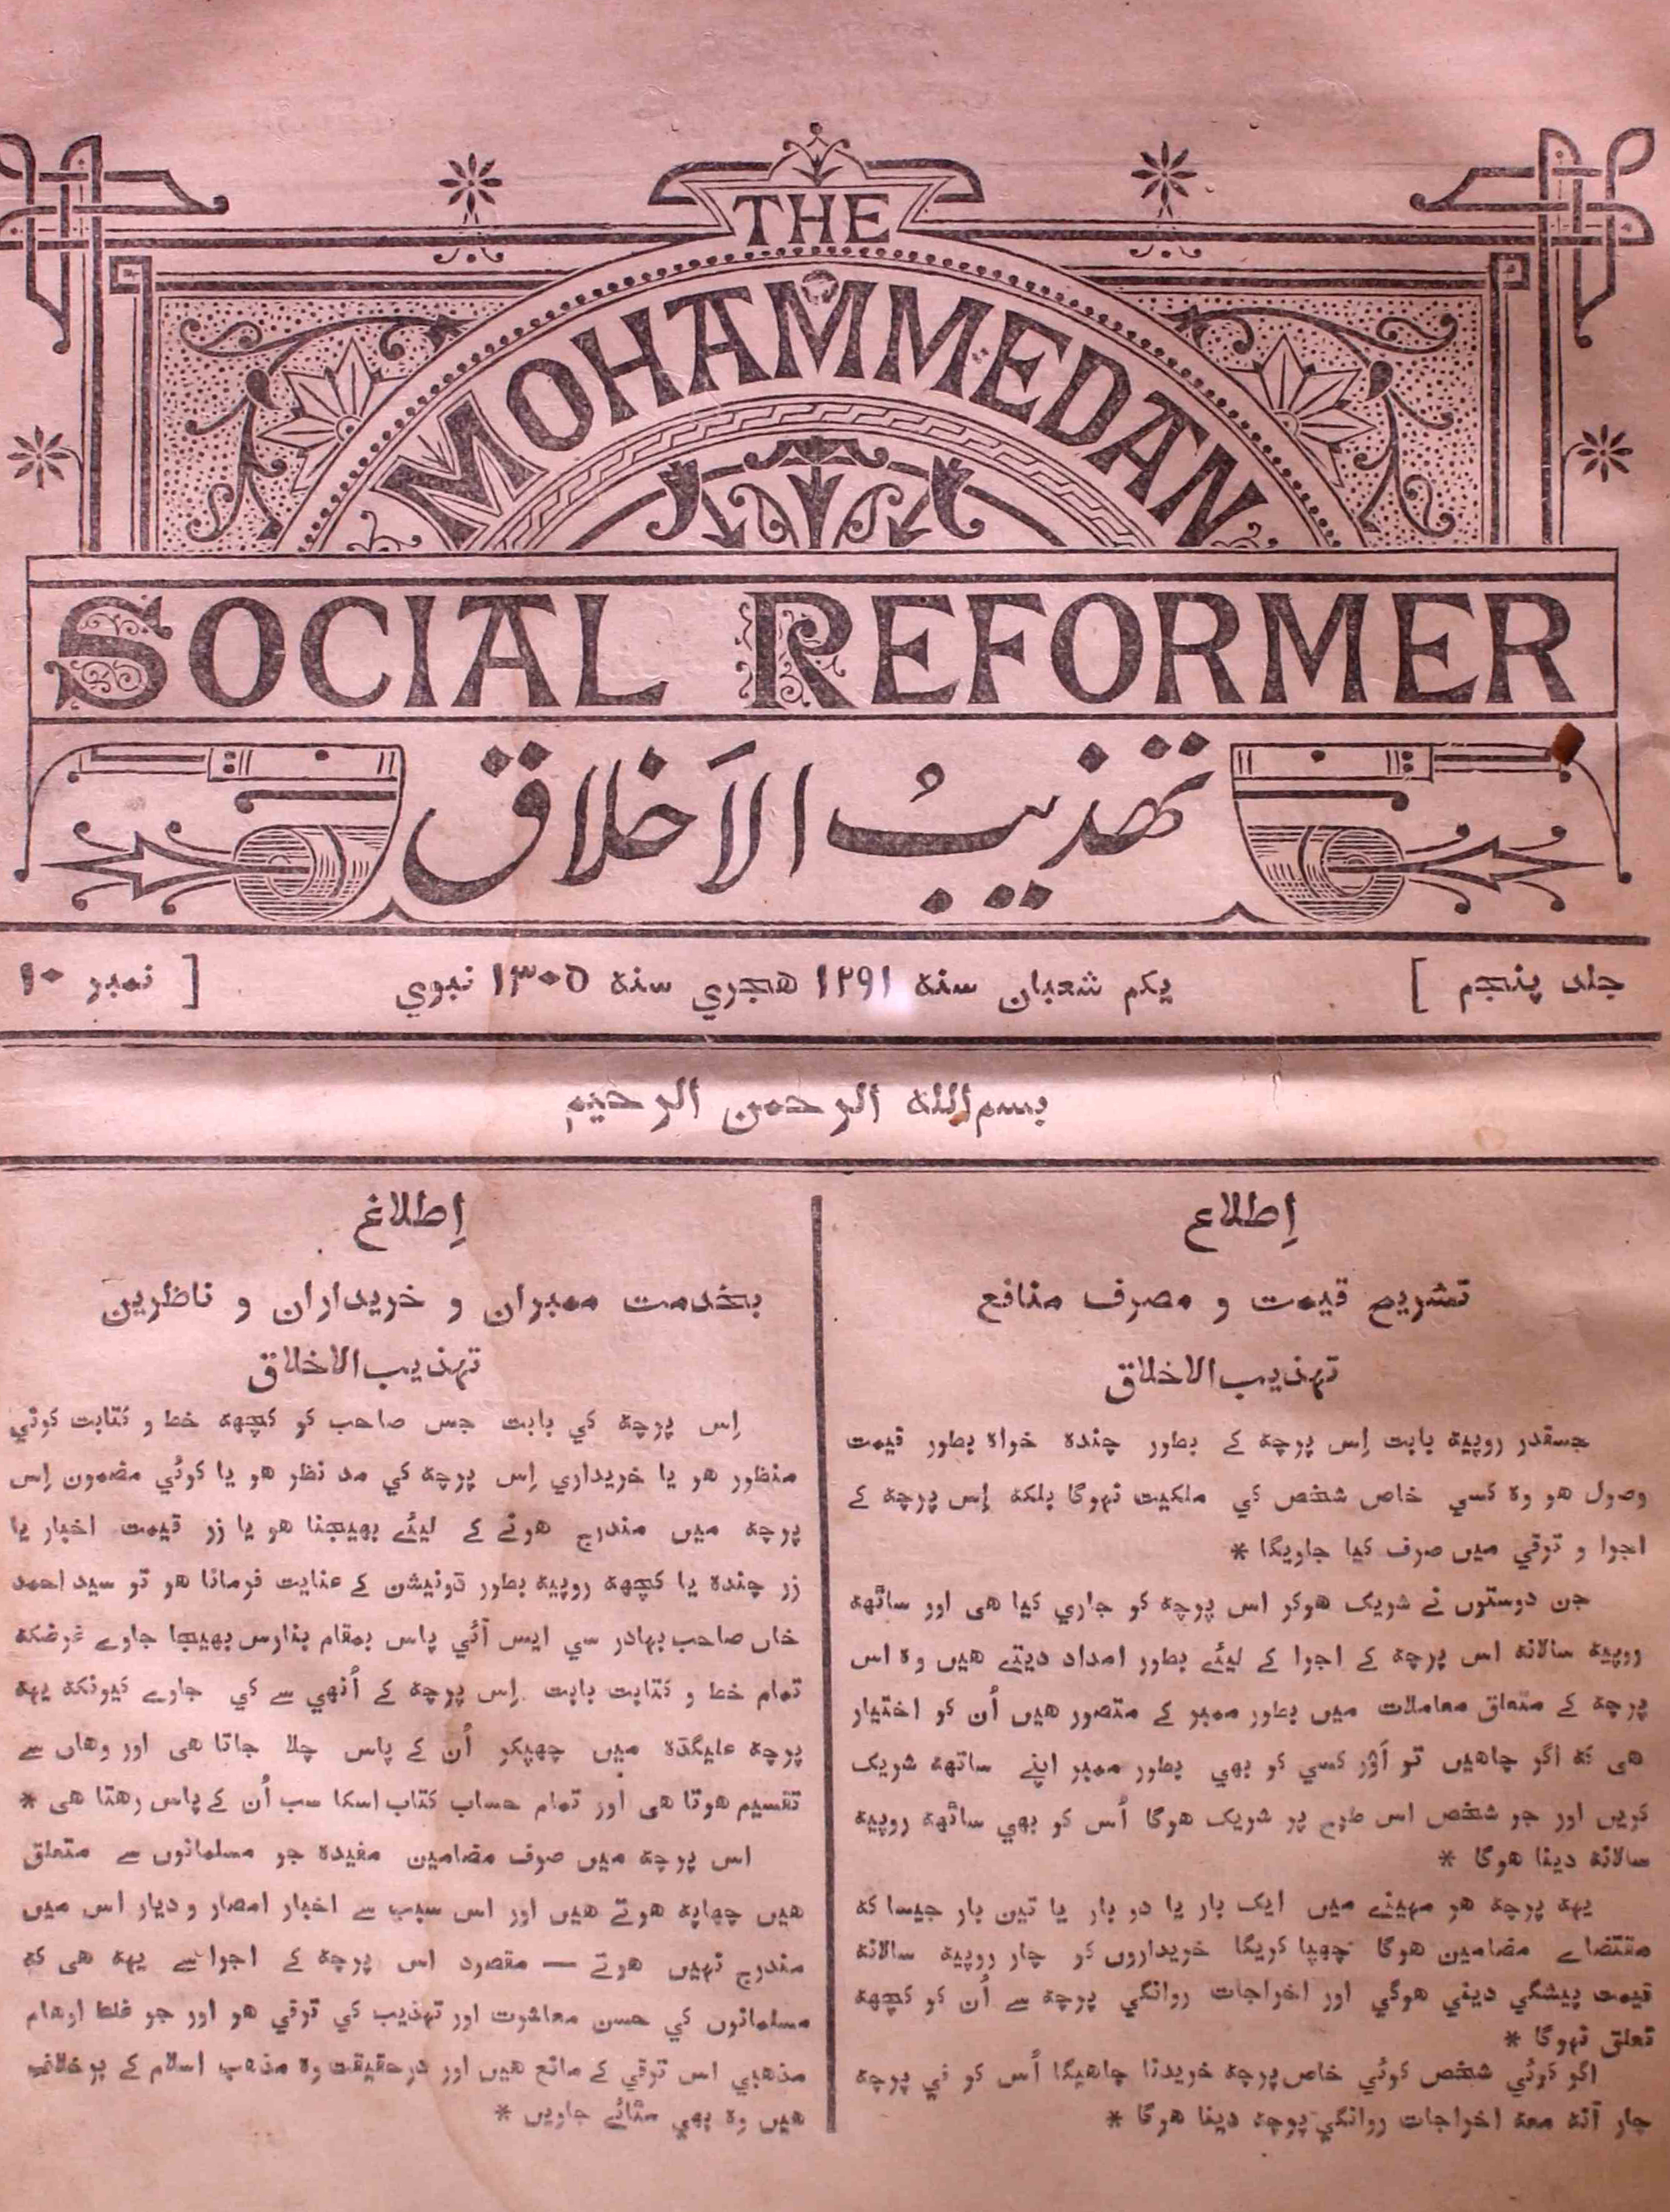 THE
MOHAMMEDAN
SOCIAL REFORMER
تهذیبُ الاَخلاق
جلد پنجم ] یکم شعبان سنه ۱۲۹۱ هجري سنه ۱۳۰۵ نبوي [ نمبر ۱۰
بسم الله الرحمن الرحیم
اِطلاع
تشریح قیمت و مصرف منافع
تہذیب الاخلاق
جسقدر روپیه بابت اِس پرچه کے بطور چنده خواه بطور قیمت
وصول هو وه کسي خاص شخص کي ملکیت نهوگا بلکه اِس پرچه کے
اجرا و ترقي میں صرف کیا جاویگا *
جن دوستوں نے شریک هوکر اس پرچه کو جاري کیا هی اور ساٹهه
روپیه سالانه اس پرچه کے اجرا کے لیئے بطور امداد دیتے هیں وه اس
پرچه کے متعلق معاملات میں بطور ممبر کے متصور هیں اُن کو اختیار
هی که اگر چاهیں تو اَوْر کسي کو بهي بطور ممبر اپنے ساتهه شریک
کریں اور جو شخص اس طرح پر شریک هوگا اُس کو بهي ساٹهه روپیه
سالانه دینا هوگا *
یهه پرچه هر مہینے میں ایک بار یا دو بار یا تین بار جیسا که
مقتضاے مضامین هوگا چهپا کریگا خریداروں کو چار روپیه سالانه
قیمت پیشگي دیني هوگي اور اخراجات روانگي پرچه سے اُن کو کچهه
تعلق نهوگا *
اگر کوئي شخص کوئي خاص پرچه خریدنا چاهیگا اُس کو في پرچه
چار آنه معه اخراجات روانگي پرچه دینا هوگا *
اِطلاع
بخدمت ممبران و خریداران و ناظرین
تہذیب الاخلاق
اِس پرچه کي بابت جس صاحب کو کچهه خط و کتابت کرني
منظور هو یا خریداري اِس پرچه کي مد نظر هو یا کوئي مضمون اِس
پرچه میں مندرج هونے کے لیئے بهیجنا هو یا زر قیمت اخبار یا
زر چنده یا کچهه روپیه بطور ڈونیشن کے عنایت فرمانا هو تو سید احمد
خاں صاحب بہادر سي ایس آئي پاس بمقام بنارس بهیجا جاوے غرضکه
تمام خط و کتابت بابت اِس پرچه کے اُنهي سے کي جاوے کیونکه یهه
پرچه علیگڈه میں چهپکر اُن کے پاس چلا جاتا هی اور وهاں سے
تقسیم هوتا هی اور تمام حساب کتاب اسکا سب اُن کے پاس رهتا هی *
اس پرچه میں صرف مضامین مفیده جو مسلمانوں سے متعلق
هیں چهاپه هوتے هیں اور اس سبب سے اخبار امصار و دیار اس میں
مندرج نہیں هوتے — مقصود اس پرچه کے اجرا سے یهه هی که
مسلمانوں کي حسن معاشرت اور تہذیب کي ترقي هو اور جو غلط اوهام
مذهبي اس ترقي کے مانع هیں اور درحقیقت وه مذهب اسلام کے برخلاف
هیں وه بهي مٹائے جاویں *